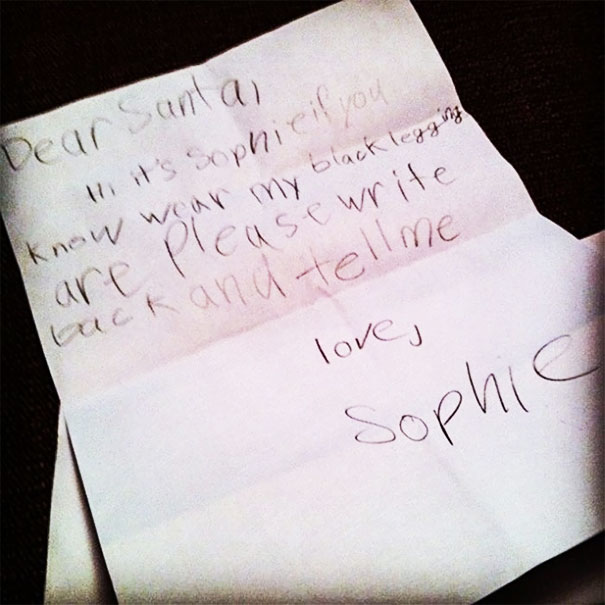 Dear Santa,
Hi it's Sophie if you
know wear my black leggings
are please write
back and tell me
love,
Sophie